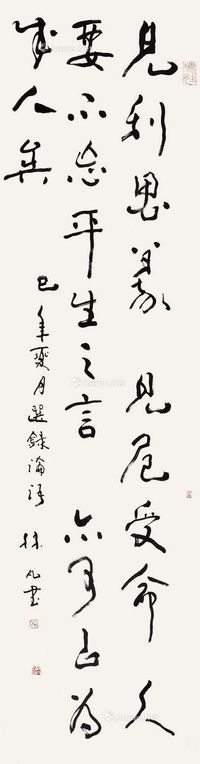 見利思義見危受命久
要不忘平生之言亦可以為
成人矣
巳年夏月選錄論語 林凡書